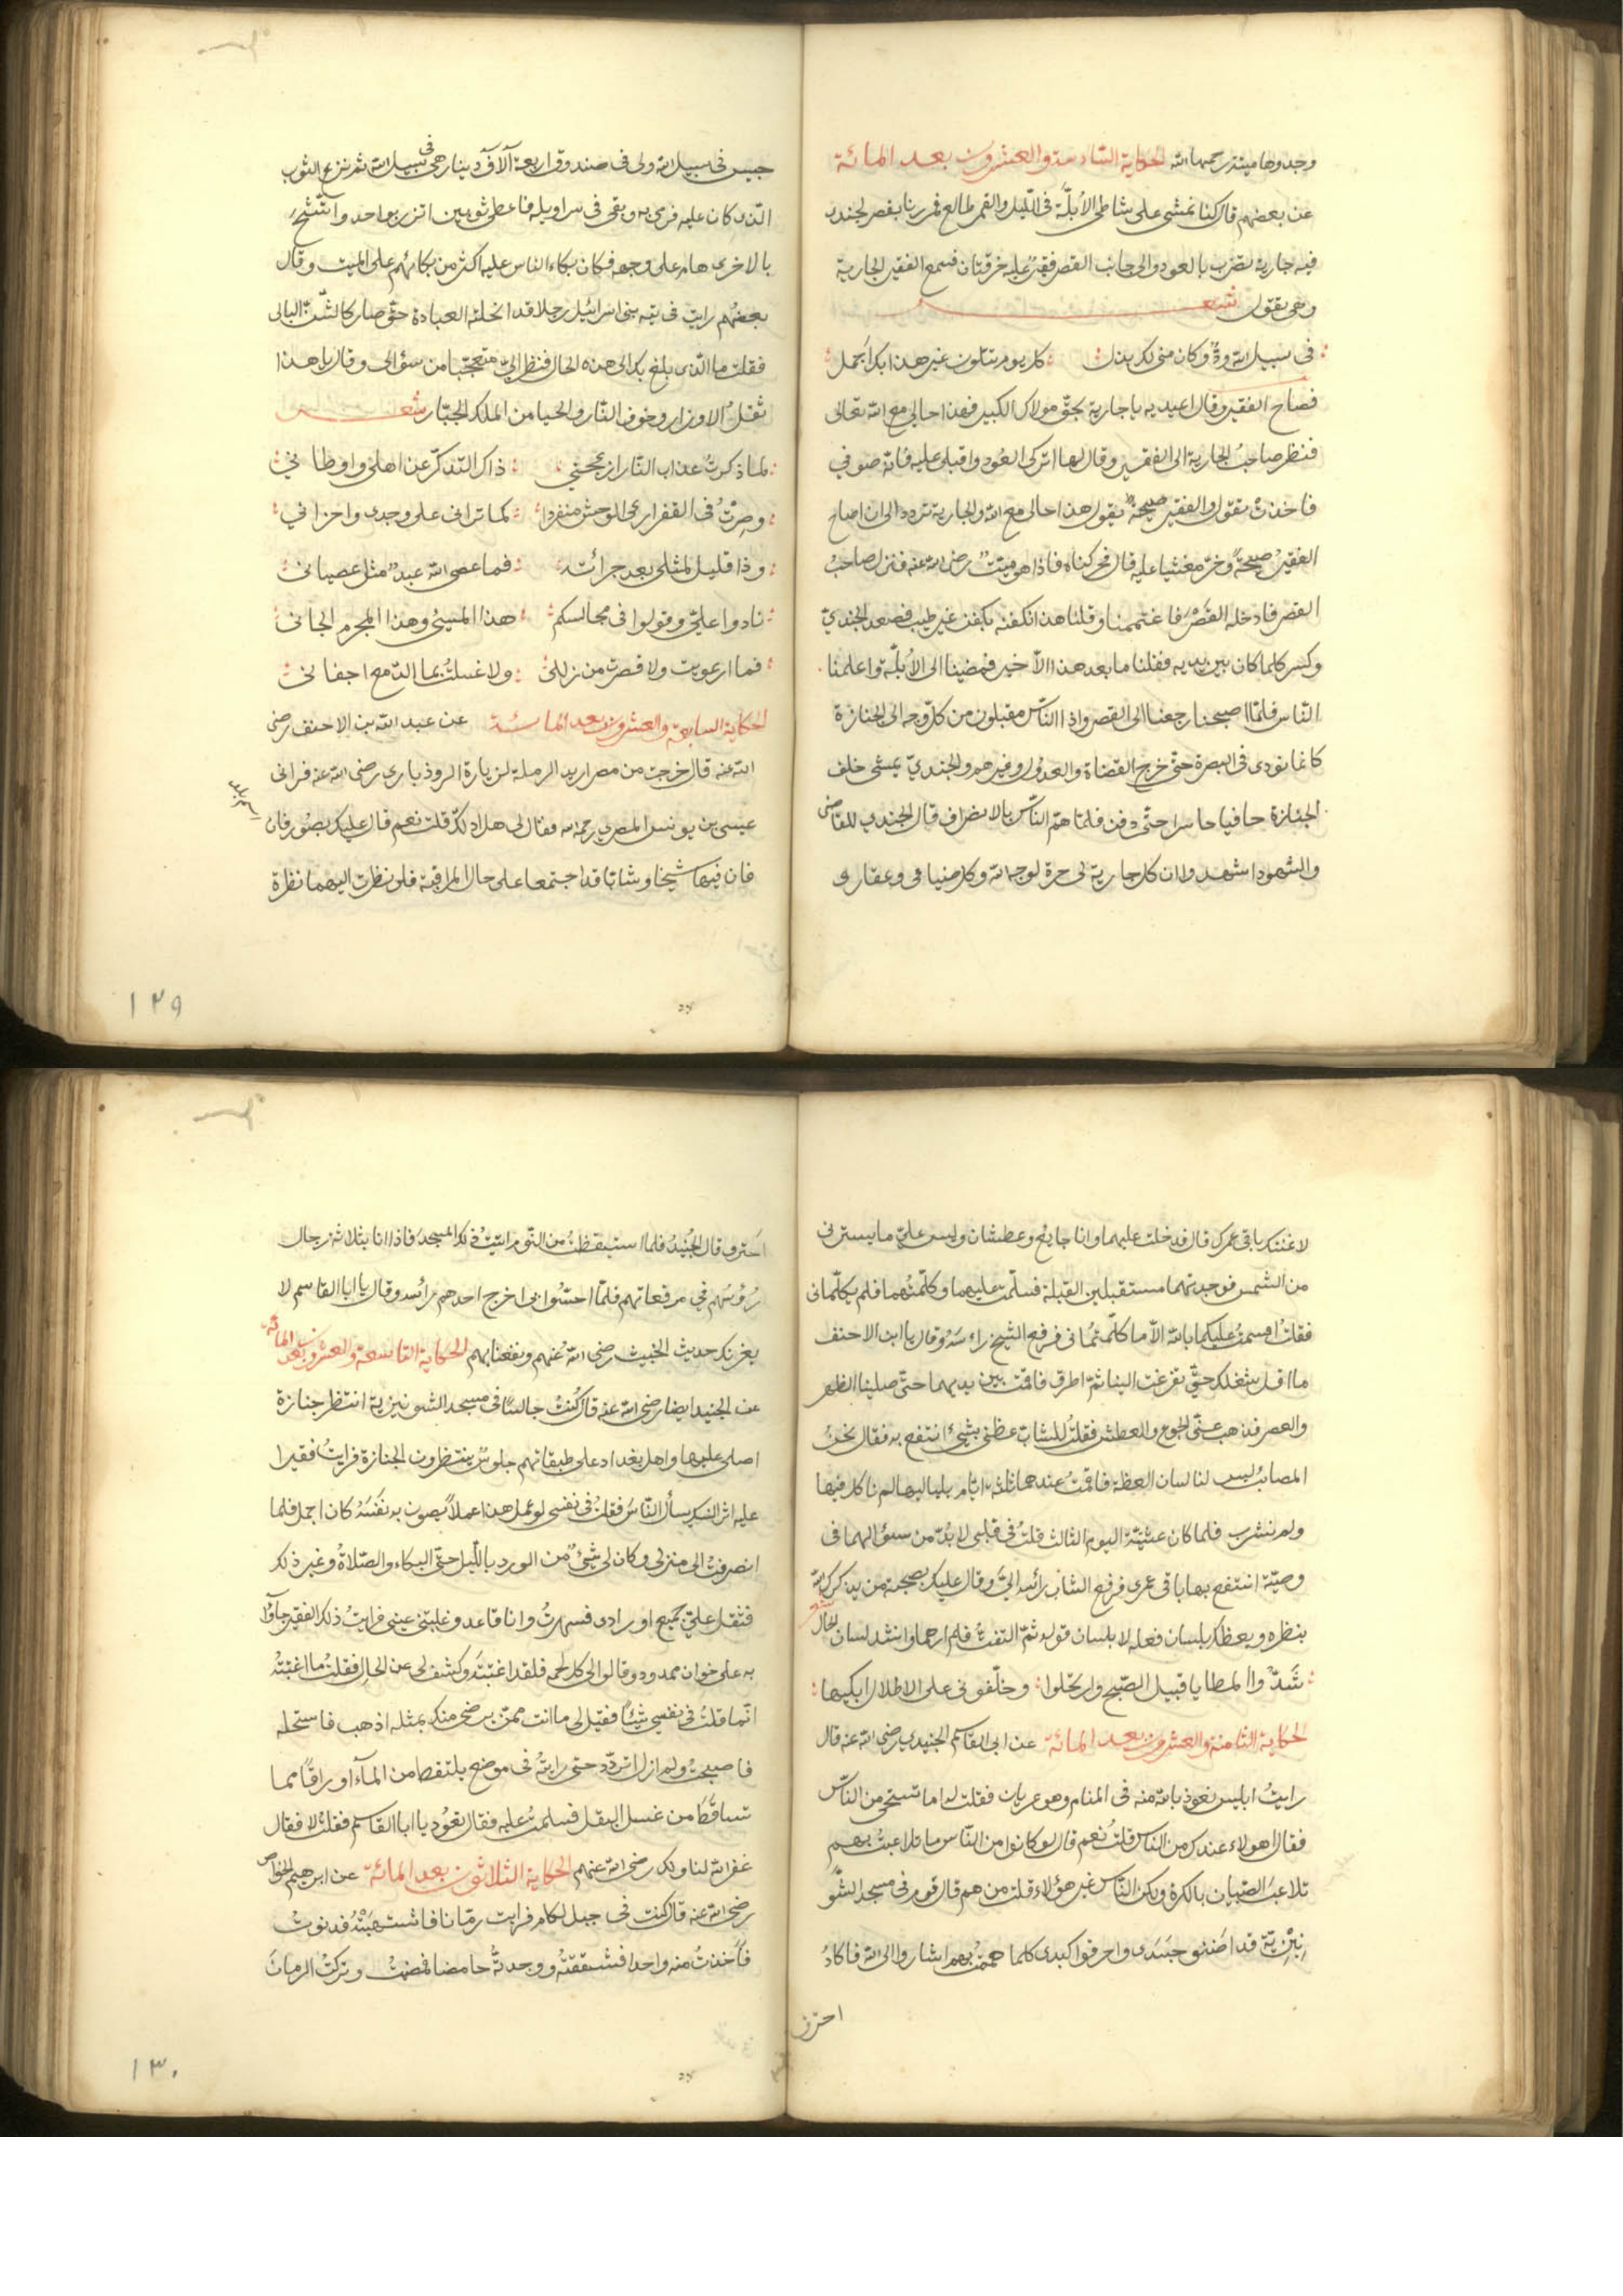 وجدوها ميتة رحمها الله الحكاية السادسة والعشرون بعد المائة
عن بعضهم قال كنا نمشى على شاطى الأبلّة فى الليل والقمر طالع فمررنا بقصر لجندى
فيه جارية تضرب بالعود والى جانب القصر فقير عليه خرقتان فسمع الفقير الجارية
وهى تقول شعر
فى سبيل الله ودّ وكان منى لك يبذل كل يوم تتلون غير هذا بك اجمل
فصاح الفقير وقال اعيديه يا جارية بحق مولاك الكبير فهذا حالى مع الله تعالى
فنظر صاحب الجارية الى الفقير وقال لها اتركى العود واقبلى عليه فانه صوفي
فاخذت تقول والفقير صيحة يقول هذا حالى مع الله والجارية تردد الى ان صاح
الفقير صيحة وخرّ مغشيا عليه قال فحركناه فاذا هو ميت رضى الله عنه فنزل صاحب
القصر فادخله القصر فاغتممنا وقلنا هذا نكفنه بكفن غير طيب فصعد الجندي
وكسر كلما كان بين يديه فقلنا ما بعد هذا الا خير فمضينا الى الأبلّة واعلمنا
الناس فلمّا اصبحنا رجعنا الى القصر واذا الناس مقبلون من كل وجه الى الجنازة
كانما نودى فى البصرة حتى خرج القضاة والعدول وغيرهم والجنديّ يمشى خلف
الجنازة حافيا حاسرا حتى دفن فلما همّ الناس بالانصراف قال الجندى للقاضى
والشهود اشهدوا ان كل جارية لى حرة لوجه الله وكل ضياعى وعقارى
حبيس فى سبيل الله ولى فى صندوق اربعة آلاف دينار هى فى سبيل الله ثم نزع الثوب
الذى كان عليه فرمى به وبقى فى سراويله فاعطى ثوبين اتزر بواحد واتشح
بالاخرى هام على وجهه فكان بكاء الناس عليه اكثر من بكائهم على الميت وقال
بعضهم رايت فى تيه بنى اسرائيل رجلا قد انحلته العبادة حتى صار كالشنّ البالى
فقلت ما الذى بلغ بك الى هذه الحال فنظر الىّ متعجبا من سؤالى وقال يا هذا
ثقل الاوزار وخوف النار والحيا من الملك الجبّار شعر
لما ذكرت عذاب النار ازعجنى ذاك التذكر عن اهلى واوطانى
وصرت فى القفر ارعى الوحش منفردا كما ترانى على وجدى واحزانى
وذا قليل لمثلى بعد جرائته فما عصى الله عبد مثل عصيانى
نادوا علىّ وقولوا فى مجالسكم هذا المسيئ وهذا المجرم الجانى
فما ارعويت ولا قصرت من زللى ولا غسلت بماء الدمع اجفانى
الحكاية السابعة والعشرون بعد المائة عن عبد الله بن الاحنف رضى
الله عنه قال خرجت من مصر اريد الرملة لزيارة الروذبارى رضى الله عنه فرانى
عيسى بن يونس المصرى رحمه الله فقال لى هل ادلك قلت نعم قال عليك بصور فان
فان فيها شيخا وشابّا قد اجتمعا على حال المراقبة فلو نظرت اليهما نظرة
١٢٩
لاغنتك باقى عمرك قال فدخلت عليهما وانا جايع وعطشان وليس علىّ ما يسترنى
من الشمس فوجدتهما مستقبلين القبلة فسلّمت عليهما وكلّمتهما فلم يكلّمانى
فقلت اقسمت عليكما بالله الا ما كلّمتمانى فرفع الشيخ راسه وقال يا ابن الاحنف
ما اقل شغلك حتى تفرغت الينا ثم اطرق فاقمت بين يديهما حتى صلينا الظهر
والعصر فذهب عنّى الجوع والعطش فقلت للشاب عظنى بشيئ انتفع به فقال نحن
المصائب ليس لنا لسان العظة فاقمت عندهما ثلثة ايام بلياليها لم ناكل فيها
ولم نشرب فلما كان عشيّة اليوم الثالث قلت فى قلبى لا بدّ من سؤالهما فى
وصيّة انتفع بها باقى عمرى فرفع الشاب رأسه الىّ وقال عليك بصحبة من يذكرك الله
بنظره ويعظك بلسان فعله لا بلسان قوله ثم التفت فلم ارهما وانشد لسان الحال شعر
شدّوا المطايا قبيل الصبح وارتحلوا وخلّفونى على الاطلال ابكيها
الحكاية الثامنة والعشرون بعد المائة عن ابى القاسم الجنيدى رضى الله عنه قال
رايت ابليس نعوذ بالله منه فى المنام وهو عريان فقلت له اما تستحى من الناس
فقال اهولاء عندك من الناس قلت نعم قال لو كانوا من الناس ما تلاعبت بهم
تلاعب الصبيان بالكرة ولكن الناس غير هؤلاء قلت من هم قال قوم فى مسجد الشو
نيزية قد اضنو جسدى واحرقوا كبدى كلما هممت بهم اشاروا الى الله فاكاد
احترق
احترق وقال الجنيد فلما استيقظت من النوم راتيت فى ذلك المسجد فاذا انا بثلاثة رجال
رؤسهم فى مرقعاتهم فلمّا احسّوا بى اخرج احدهم رأسه وقال يا ابا القاسم لا
يغرنك حديث الخبيث رضى الله عنهم ونفعنا بهم الحكاية التاسعة والعشرون بعد المائة
عن الجنيد ايضا رضى الله عنه قال كنت جالسا فى مسجد الشونيزية انتظر جنازة
اصلى عليها واهل بغداد على طبقاتهم جلوس ينتظرون الجنازة فرايت فقيرا
عليه اثر النسك يسأل الناس فقلت فى نفسى لو عمل هذا عملا يصون به نفسه كان اجمل فلما
انصرفت الى منزلى وكان لى شيئ من الورد بالليل حتى البكاء والصلاة وغير ذلك
فثقل علىّ جميع اورادى فسهرت وانا قاعد وغلبتنى عينى فرايت ذلك الفقير جاؤا
به على خوان ممدود وقالوا لى كل لحمه فلقد اغتبته وكشف لى عن الحال فقلت ما اغتبته
انما قلت فى نفسى شيئا فقيل لى ما انت ممن يرضى منك بمثله اذهب فاستحله
فاصبحت ولم ازل اتردد حتى رايته فى موضع يلتقط من الماء اوراقا مما
تساقط من غسل البقل فسلمت عليه فقال تعود يا ابا القاسم فقلت لا فقال
غفر الله لنا ولك رضى الله عنهم الحكاية الثلاثون بعد المائة عن ابرهيم الخواص
رضى الله عنه قال كنت فى جبل لكام فرايت رمّانا فاشتهيته فدنوت
فأخذت منه واحدا فشققته ووجدته حامضا فمضيت وتركت الرمان
١٣٠